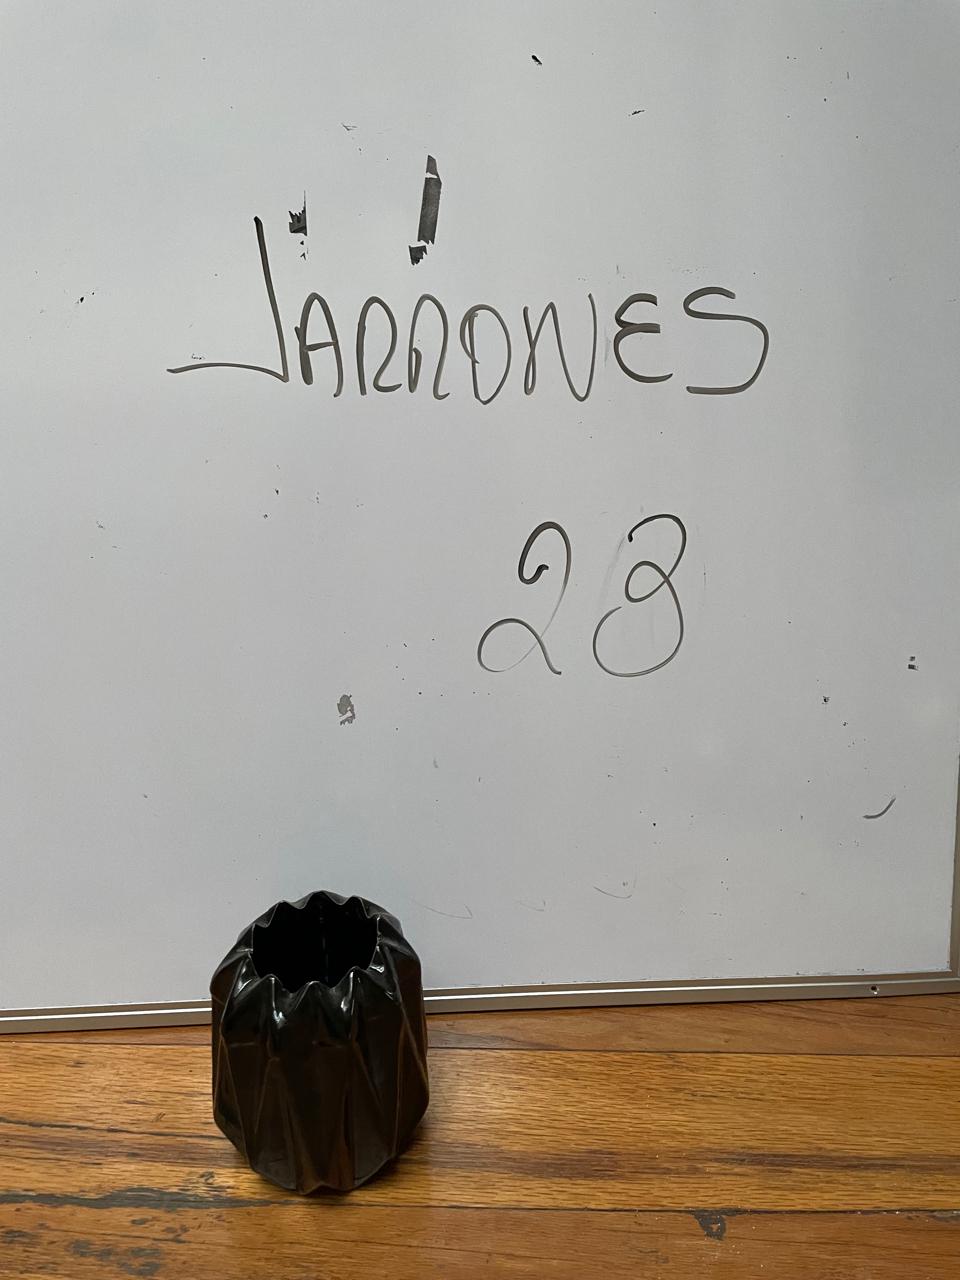 JARRONES
23